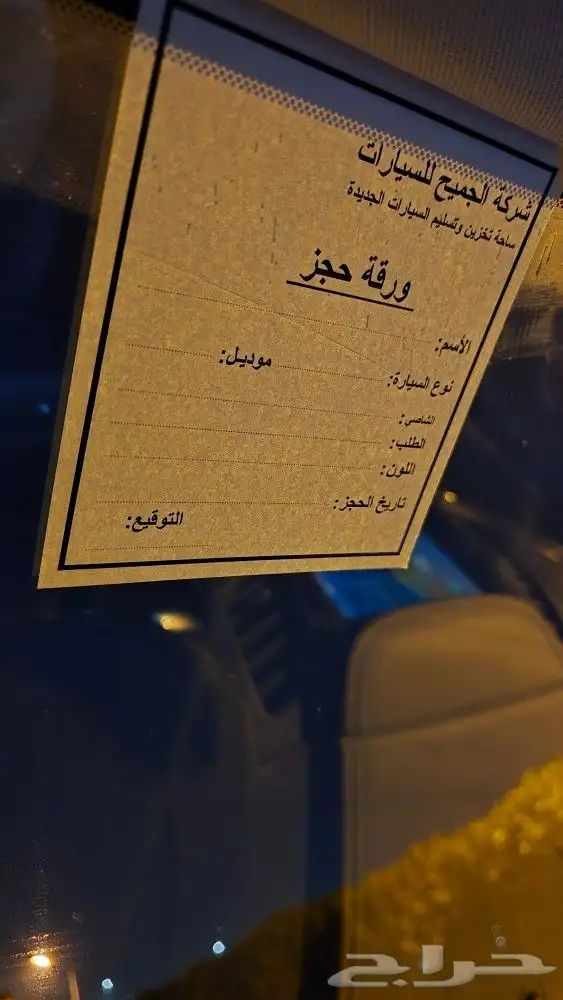 شركة الجميح للسيارات
ساحة تخزين وتسليم السيارات الجديدة
ورقة حجز
الأسم:
نوع السيارة: موديل:
الشاصي:
الطلب:
اللون:
تاريخ الحجز:
التوقيع:
حراج